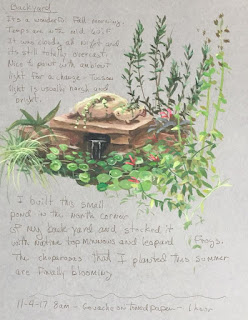 Backyard
Its a wonderful Fall morning.
Temps are in the mid 60's F
It was cloudy all night and
its still totally overcast.
Nice to paint with ambient
light for a change - Tucson
light is usually harsh and
bright.
I built this small
pond in the North corner
of my back yard and stocked it
with native top minnows and leopard frogs.
The chuparosas that I planted this summer
are finally blooming
11-9-17 8am - Gouache on Toned paper - 1 hour